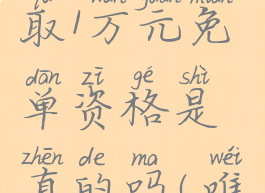 取1万元免
dān zī gé shì
单资格是
zhēn de ma wéi
真的吗(唯